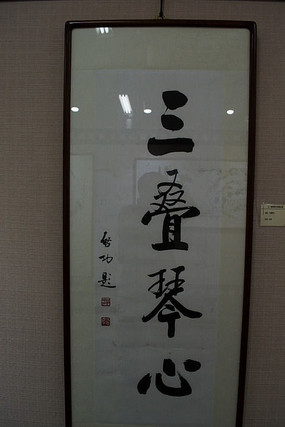 三叠琴心
启功题